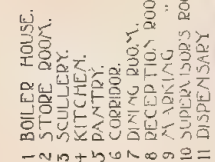 1 BOILER HOUSE.
2 STORE ROOM.
3 SCULLERY.
4 KITCHEN.
5 PANTRY.
6 CORRIDOR.
7 DINING ROOM.
8 RECEPTION ROO
9 MARKING "
10 SUPERVISOR'S ROO
11 DISPENSARY